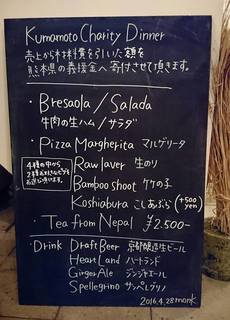 Kumamoto Charity Dinner
売上から材料費を引いた額を
熊本県の義援金へ寄付させて頂きます。
・Bresaola/Salada
牛肉の生ハム/サラダ
・Pizza Margherita マルゲリータ
4種の中から
Raw laver 生のり
Bamboo shoot タケの子
Koshiabura こしあぶら (+500 yen)
・Tea from Nepal ¥2.500-
・Drink Draft Beer 京都醸造生ビール
Heart Land ハートランド
Ginger Ale ジンジャエール
Spellegrino サンペレグリノ
2016.4.28 monk